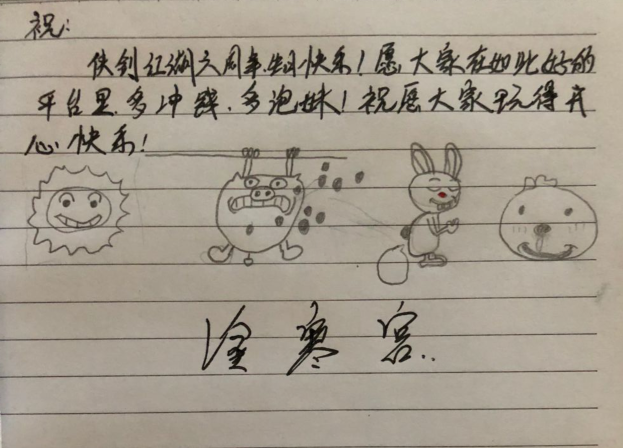 祝:
侠剑江湖六周年生日快乐!愿大家在如此好的
平台里.多冲钱.多泡妹!祝愿大家玩得开
心快乐!
寒宫..